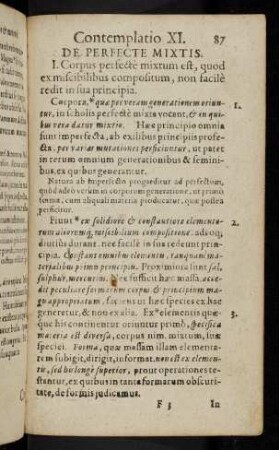 Contemplatio XI. 87
DE PERFECTE MIXTIS.
I. Corpus perfectè mixtum est, quod
ex miscibilibus compositum, non facilè
redit in sua principia.
Corpora, * quæ per veram generationem oriun-
tur, in scholis perfectè mixta vocant, & in qui-
bus vera datur mixtio. Hæc principio omnia
sunt imperfecta, ab exilibus principiis profe-
cta, per varias mutationes perficiuntur, ut patet
in rerum omnium generationibus & semini-
bus, ex quibus generantur.
Natura ab imperfectis progreditur ad perfectiora,
quod adeò verum in corporum generatione, ut primùm
forma, cum aliqua materia producatur, quæ postea
perficitur.
Fiunt * ex solidiore & constantiore elemento-
rum aliorumq; miscibilium compositione: adeoq;
diutius durant, nec facilè in sua redeunt princi-
pia. Constant omnibus elementis, tanquam mate-
rialibus primis principiis. Proxima sunt sal,
sulphur, mercurius. Nec sufficit hæc massa, acce-
dit peculiare formarum corpus & principium ma-
gis appropriatum, faciens ut hæc species ex hac
generetur, & non ex alia. Ex * elementis quæ-
que his continentur oriuntur primò, specifica
materia est diversa, corpus nim. mixtum, hujus
speciei. Forma, quæ massam illam elementa-
rem subigit, dirigit, informat, non est ex elemen-
tis, sed his longè superior, prout operationes te-
stantur, ex quibus in tanta formarum obscuri-
tate, de formis judicamus.
F 3 In
1.
2.
3.